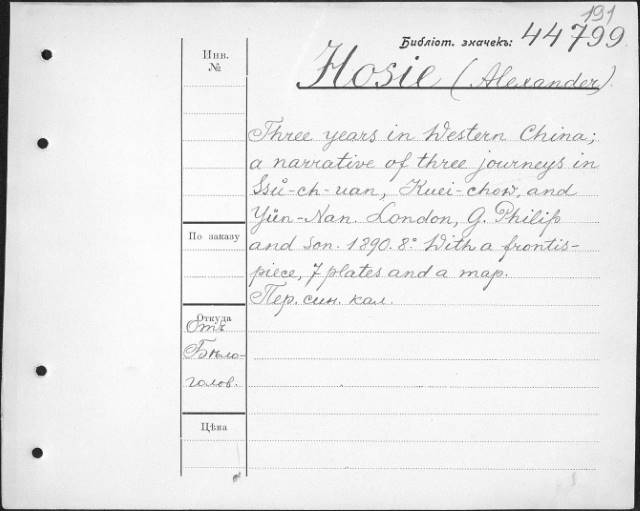 191
Библіот. значекъ: 44799
Hosie (Alexander).
Инв.
№
Three years in Western China;
a narrative of three journeys in
Ssŭ-ch-uan, Kuei-chow, and
Yün-Nan. London, G. Philip
and Son. 1890. 8° With a frontis-
piece, 7 plates and a map.
Пер. син. кал.
По заказу
Откуда
Отъ
Бѣло-
голов.
Цѣна